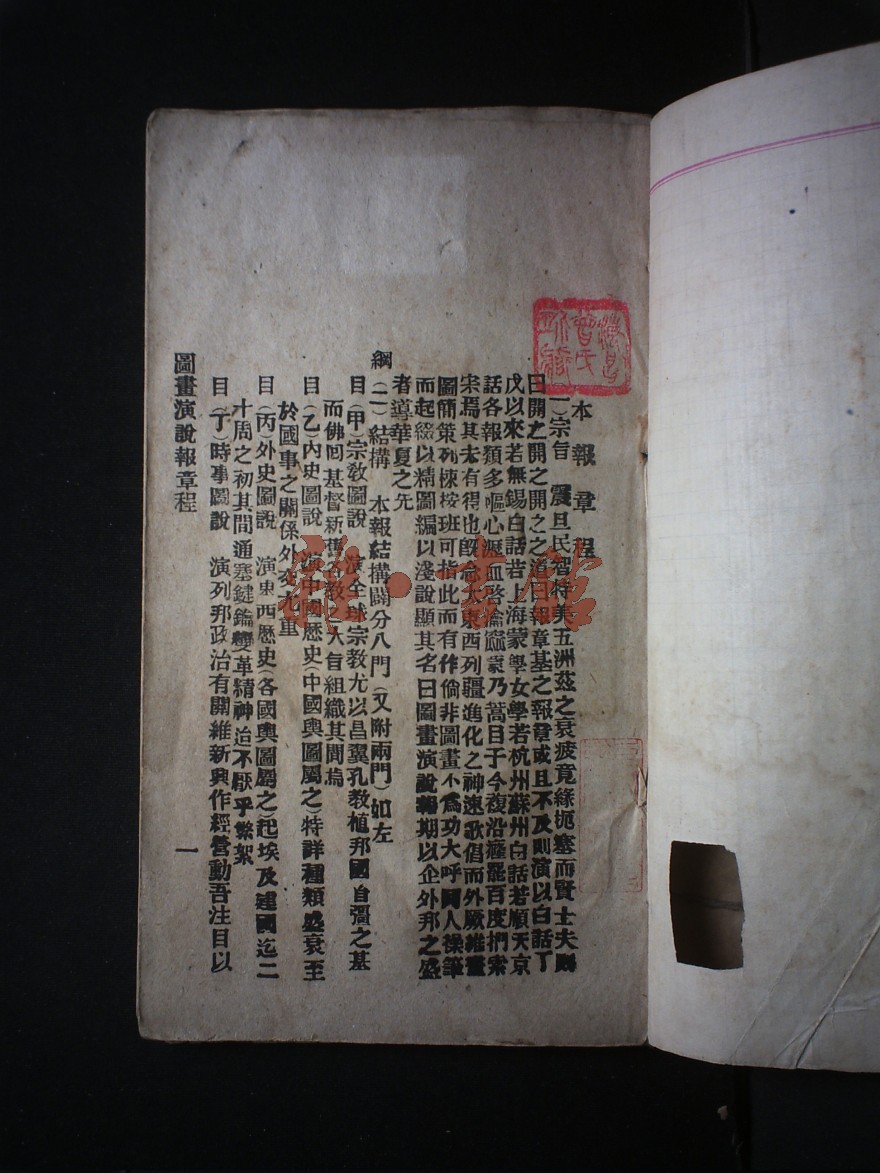 本報章程
(一)宗旨　震旦民智特美五洲茲之衰疲竟緣扼塞而賢士夫則
曰開之開之開之之道曰報章基之報章或且不及則演以白話丁
戊以來若無錫白話若上海蒙學女學若杭州蘇州白話若順天京
話各報類多嘔心瀝血啓瀹蒙乃蒿目于今復沿癃罷百度捫索
未有得也旣念太東西列疆進化之神速歌倡而外厥維畫
圖簡策列棟按班可指此而有作倘非圖畫不爲功大呼同人操筆
而起綴以精圖編以淺說顯其名曰圖畫演說報期以企外邦之盛
者導華夏之先
綱(二)結構　本報結構闢分八門(又附兩門)如左
目(甲)宗敎圖說　演全球宗敎尤以昌翼孔敎植邦國自彊之基
而佛回基督新舊各敎之大旨組織其間焉
目(乙)內史圖說　演中國歷史(中國輿圖屬之)特詳種類盛衰至
於國事之關係外交尤重
目(丙)外史圖說　演東西歷史(各國輿圖屬之)起埃及建國迄二
十周之初其間通塞鍵鑰變革精神迨不厭乎繁絮
目(丁)時事圖說　演列邦政治有關維新興作經營動吾注目以
圖畫演說報章程
一
雜·書館